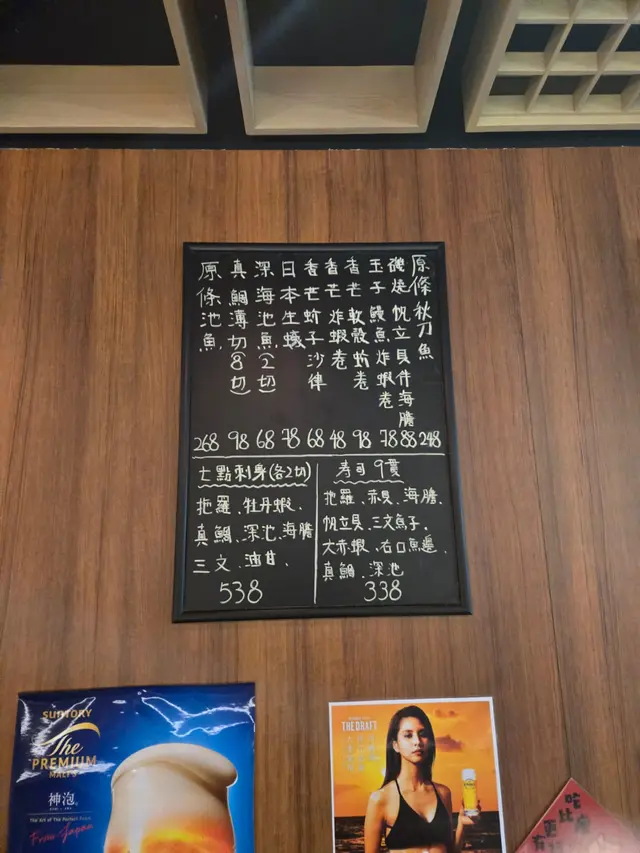 原條秋刀魚 248
磯燒帆立貝伴海膽 88
玉子鰻魚炸蝦卷 78
香芒軟殼蚧卷 98
香芒炸蝦卷 48
香芒蚧子沙律 68
日本生蠔 78
深海池魚(2切) 68
真鯛薄切(8切) 98
原條池魚 268
七點刺身(各2切)
拖羅、牡丹蝦、
真鯛、深池、海膽
三文、油甘、
538
寿司9貫
拖羅、赤貝、海膽、
帆立貝、三文魚子、
大赤蝦、右口魚邊、
真鯛、深池
338
SUNTORY
The
PREMIUM
MALT'S
神泡。
The Art of The Perfect Foam
From Japan
THE DRAFT